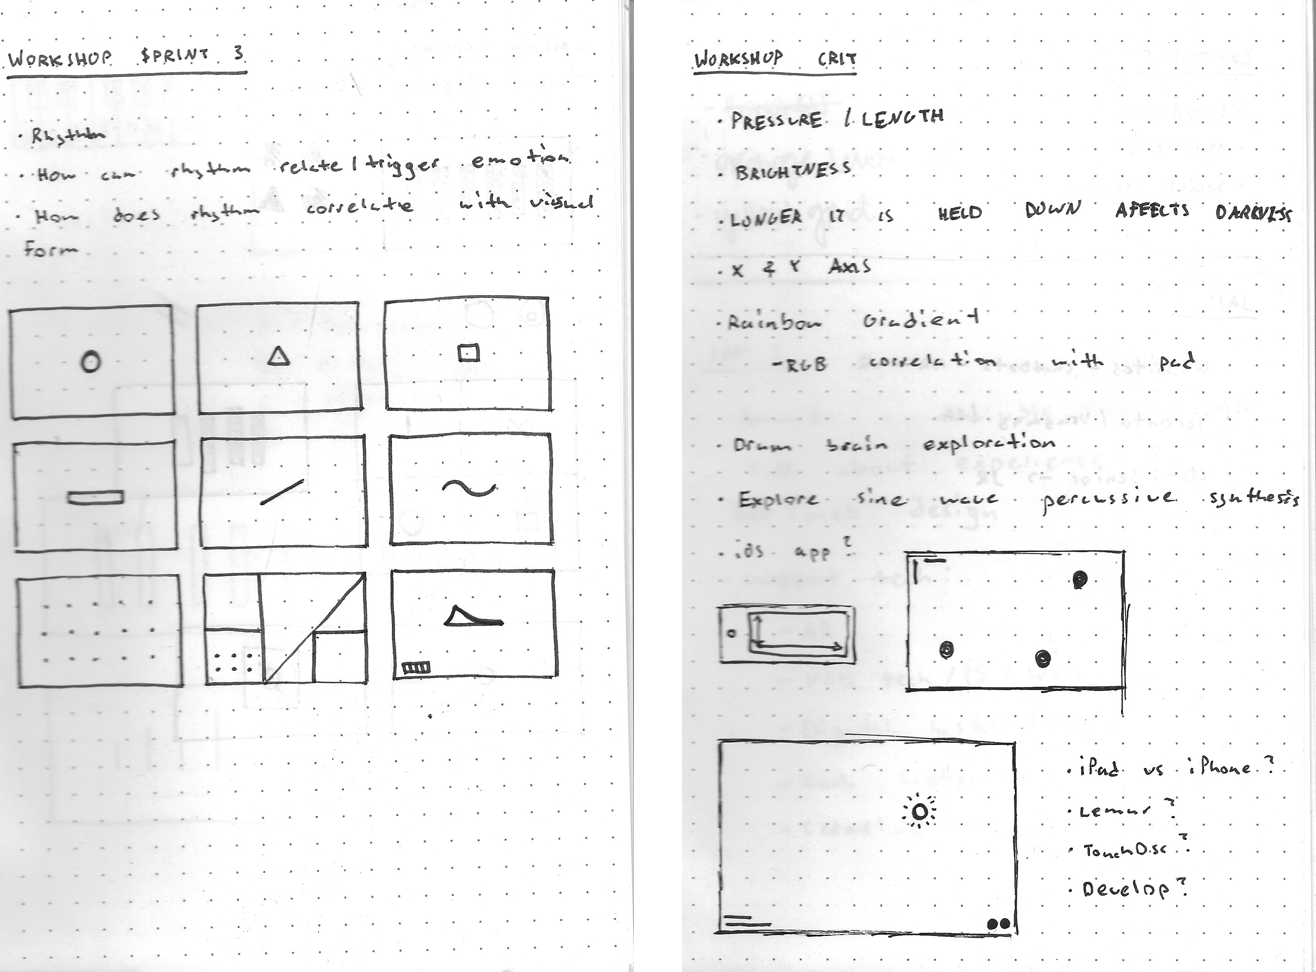 WORKSHOP SPRINT 3
· Rhythm
· How can rhythm relate / trigger emotion
· How does rhythm correlate with visual
Form
WORKSHOP CRIT
· PRESSURE / LENGTH
· BRIGHTNESS
· LONGER IT IS HELD DOWN AFFECTS DARKNESS
· X & Y AXIS
· Rainbow Gradient
- RGB correlation with pad
· Drum brain exploration
· Explore sine wave percussive synthesis
· ios app?
· iPad vs iPhone?
· Lemur?
· TouchOSC?
· Develop?